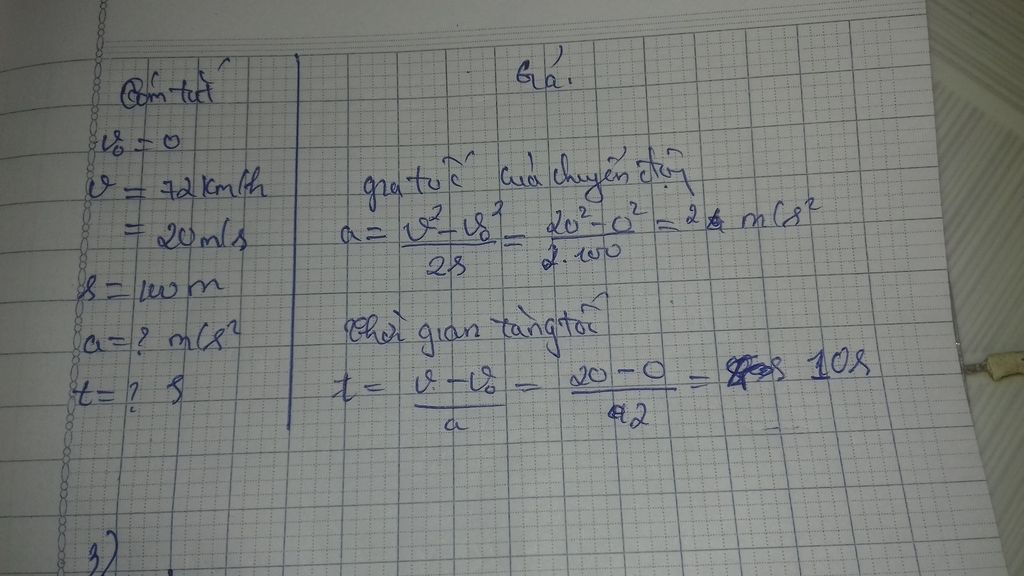 Tóm tắt
v₀ = 0
v = 72 km/h
= 20 m/s
s = 100 m
a = ? m/s²
t = ? s
Giải
gia tốc của chuyển động
a = (v² - v₀²)/(2s) = (20² - 0²)/(2.100) = 2 m/s²
thời gian tăng tốc
t = (v - v₀)/a = (20 - 0)/2 = 10s
3)